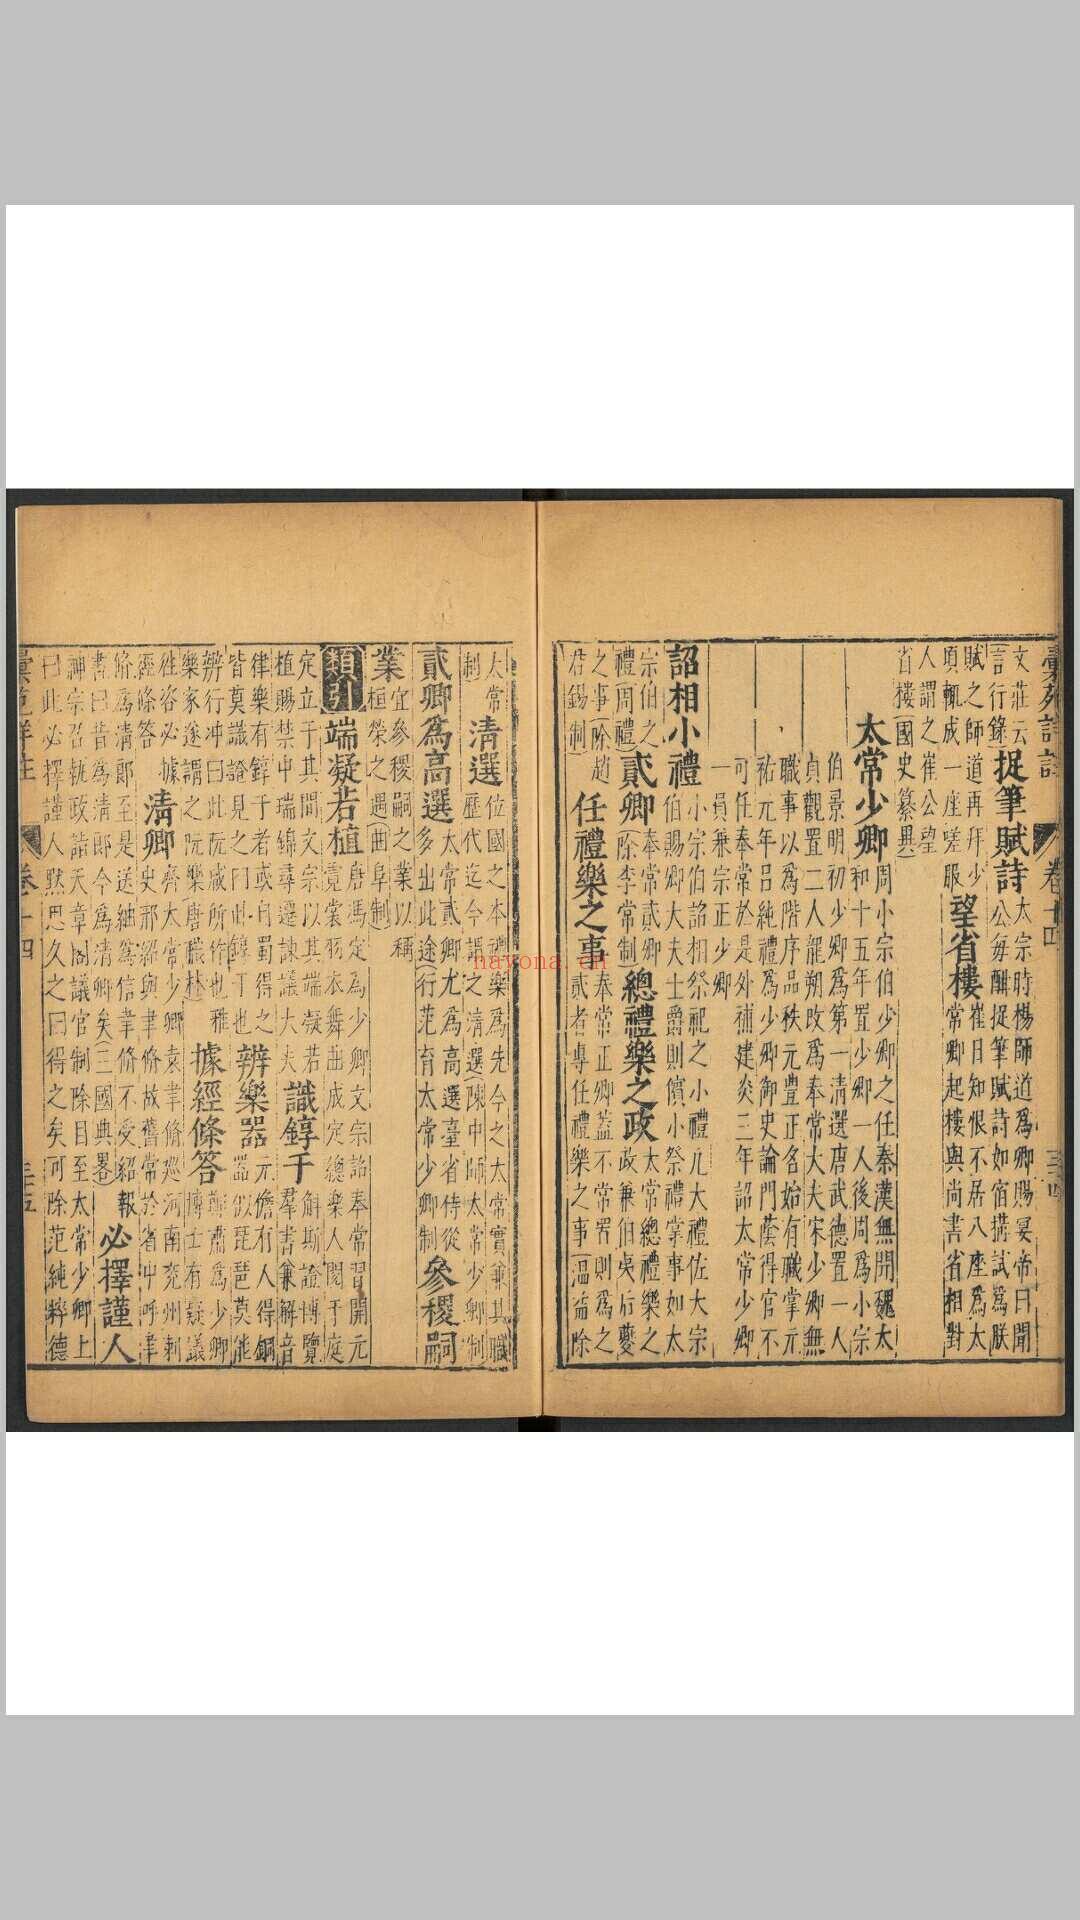 彙苑詳註 卷十四 三十四
文莊云太宗時楊師道爲卿賜宴帝曰聞
言行錄 捉筆賦詩 公每酣捉筆賦詩如宿搆試爲朕
賦之師道再拜少崔日知恨不居八座爲太
頃輒成一座嗟服 望省樓 常卿起樓與尚書省相對
人謂之崔公望
省樓 國史纂異
太常少卿 周小宗伯少卿之任秦漢無聞魏太
和十五年置少卿一人後周爲小宗
伯景明初少卿爲第一清選唐武德置一人
貞觀置二人龍朔改爲奉常大夫宋少卿無
職事以爲階序品秩元豐正名始有職掌元
祐元年呂純禮爲少卿御史論門蔭得官不
可任奉常於是外補建炎三年詔太常少卿
一員兼宗正少卿
詔相小禮 小宗伯詔相祭祀之小禮凡大禮佐大宗
伯賜卿大夫士爵則儐小祭禮掌事如大
宗伯之
禮 周禮 貳卿 奉常貳卿 除李常制 總禮樂之政 太常總禮樂之
政兼伯夷后夔
之事 除趙
君錫制 任禮樂之事 奉常正卿蓋不常置則爲之
貳者專任禮樂之事 溫益除
太常
制 清選 位國之本禮樂爲先今之太常實兼其職
歷代迄今謂之清選 陳中師太常少卿制
貳卿爲高選 太常貳卿尤爲高選臺省侍從
多出此途 行范育太常少卿制 參稷嗣
業 宜參稷嗣之業以稱
桓榮之遇 曲阜制
類引 端凝若植 唐馮定爲少卿文宗詔奉常習開元
霓裳羽衣舞曲成定總樂人閱于庭
定立于其間文宗以其端凝若
植賜禁中瑞錦尋遷諫議大夫 識錞于 斛斯證博覽
羣書兼解音
律樂有錞于者或自蜀得之
皆莫識證見之曰此錞于也 辨樂器 元儋有人得銅
器似琵琶莫能
辨行冲曰此阮咸所作也雅
樂家遂謂之阮樂 唐職林 據經條答 韓肅爲少卿
博士有疑議
往咨必據
經條答 清卿 齊太常少卿袁聿脩巡河南兗州刺
史邢紹與聿脩故舊常於省中呼聿
脩爲清郎至是送紬爲信聿脩不受紹報
書曰昔爲清郎今爲清卿矣 三國典畧 必擇謹人
神宗召執政詣天章閣議官制除目至太常少卿上
曰此必擇謹人默思久之曰得之矣可除范純粹德
彙苑詳註 卷十四 三十五
nayona.cn